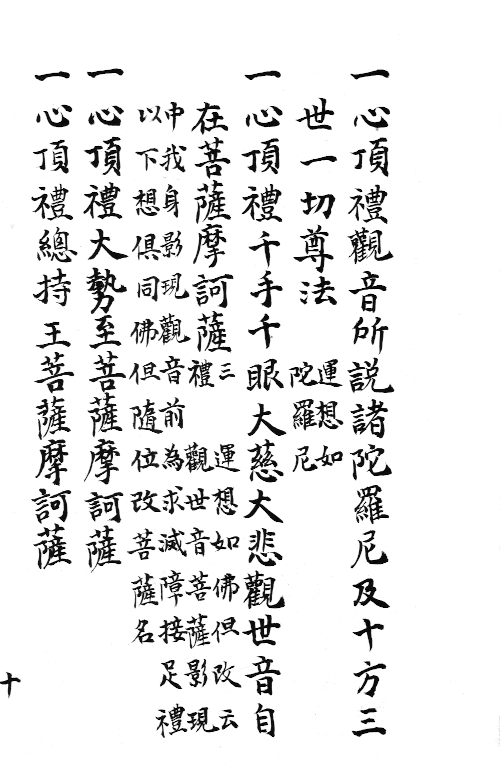 一心頂禮觀音所說諸陀羅尼及十方三
世一切尊法 運想如
陀羅尼
一心頂禮千手千眼大慈大悲觀世音自
在菩薩摩訶薩 三 運想如佛但改云
禮 觀世音菩薩影現
中我身影現觀音前為求滅障接足禮
以下想俱同佛但隨位改菩薩名
一心頂禮大勢至菩薩摩訶薩
一心頂禮總持王菩薩摩訶薩
十